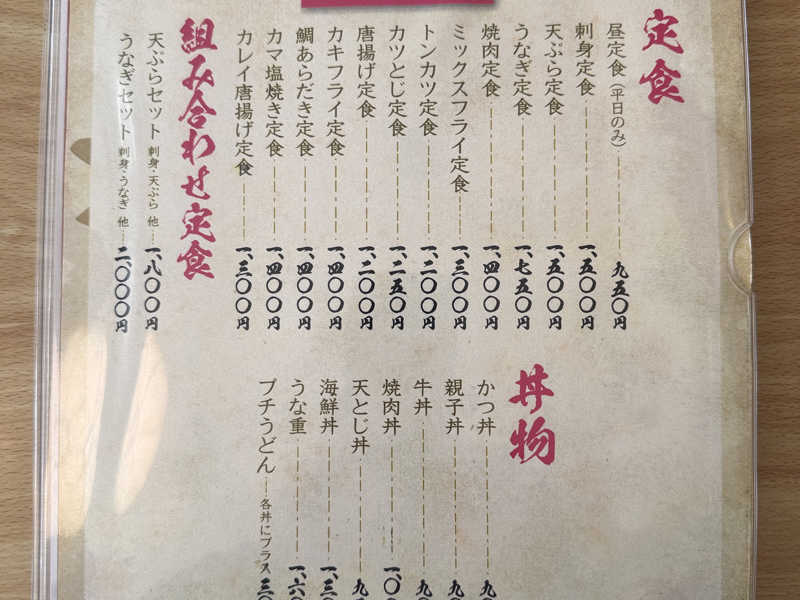 定食
昼定食(平日のみ) 九五〇円
刺身定食 一、五〇〇円
天ぷら定食 一、五〇〇円
うなぎ定食 一、七五〇円
焼肉定食 一、四〇〇円
ミックスフライ定食 一、三〇〇円
トンカツ定食 一、二〇〇円
カツとじ定食 一、二五〇円
唐揚げ定食 一、二〇〇円
カキフライ定食 一、四〇〇円
鯛あらだき定食 一、四〇〇円
カマ塩焼き定食 一、四〇〇円
カレイ唐揚げ定食 一、三〇〇円
組み合わせ定食
天ぷらセット 刺身・天ぷら 他 一、八〇〇円
うなぎセット 刺身・うなぎ 他 二、〇〇〇円
丼物
かつ丼 九
親子丼 九
牛丼 九
焼肉丼 一、〇
天とじ丼 九
海鮮丼 一、三
うな重 一、六
プチうどん 各丼にプラス 三